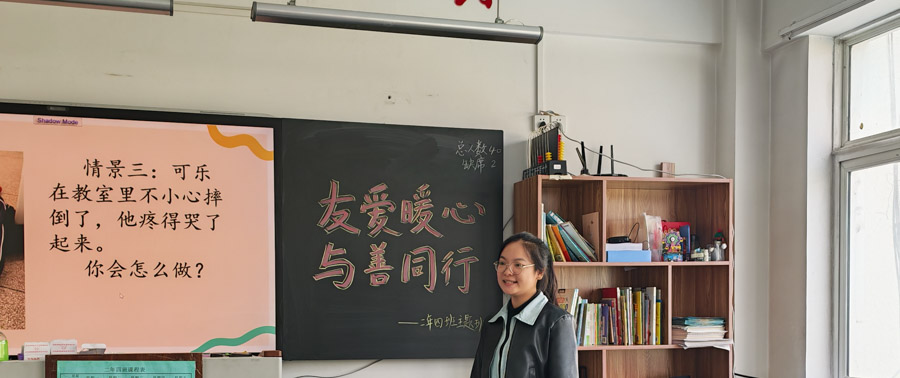 Shadow Mode
情景三：可乐
在教室里不小心摔
倒了，他疼得哭了
起来。
你会怎么做？
总人数40
缺席2
友爱暖心
与善同行
二年四班主题
二年四班课程表